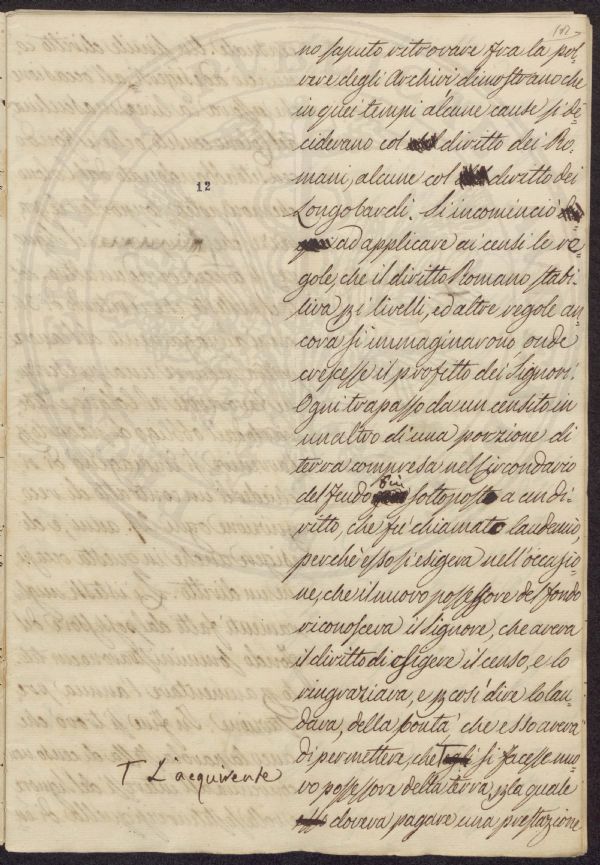 182
no saputo ritrovare fra la pol=
vere degli Archivi dimostrano che
in quei tempi alcune cause si de=
cidevano col diritto dei Ro=
mani, alcune col diritto dei
Longobardi. Si incominciò
ad applicare ai censi le re=
gole, che il diritto Romano stabi=
liva pi livelli, ed altre regole an=
cora si immaginarono, onde
crescesse il profitto dei Signori.
Ogni trapasso da un censito in
un altro di una porzione di
terra compresa nel Circondario
del feudo fù sottoposto a un di=
ritto, che fu chiamato laudemio,
perchè esso si esigeva nell'occasio=
ne, che il nuovo possessore del fondo
riconosceva il Signore, che aveva
il diritto di esigere il censo, e lo
ringraziava, e p così dire lo lau=
dava, della bontà che esso aveva
di permettere, che T si facesse nuo=
vo possessore della terra, p la quale
doveva pagare una prestazione
12
T L'acquirente